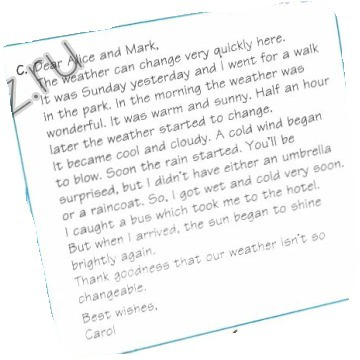 Z.RU
C. Dear Alice and Mark,
The weather can change very quickly here.
It was Sunday yesterday and I went for a walk
in the park. In the morning the weather was
wonderful. It was warm and sunny. Half an hour
later the weather started to change.
It became cool and cloudy. A cold wind began
to blow. Soon the rain started. You'll be
surprised, but I didn't have either an umbrella
or a raincoat. So, I got wet and cold very soon.
I caught a bus which took me to the hotel.
But when I arrived, the sun began to shine
brightly again.
Thank goodness that our weather isn't so
changeable.
Best wishes,
Carol